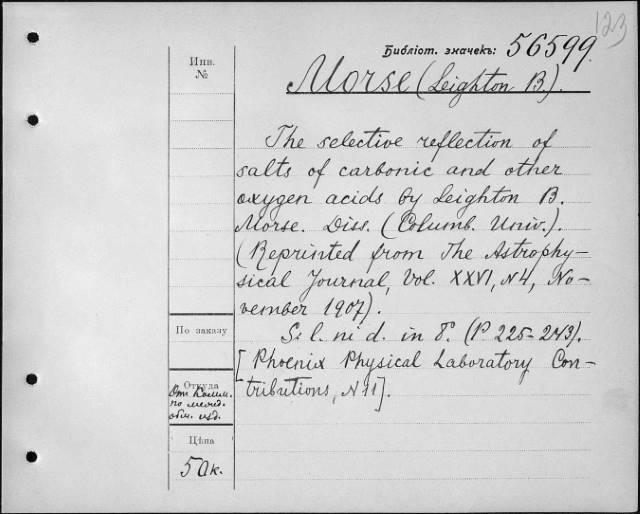 123
Библіот. значекъ: 56599.
Инв.
№
Morse (Leighton B.).
The selective reflection of
salts of carbonic and other
oxygen acids by Leighton B.
Morse. Diss. (Columb. Univ.).
(Reprinted from The Astrophy-
sical Journal, Vol. XXVI, N4, No-
vember 1907).
S. l. ni d. in 8°. (P. 225-243).
[Phoenix Physical Laboratory Con-
tributions, N 11].
По заказу
Откуда
От Комм.
по межд.
обм. изд.
Цѣна
50к.